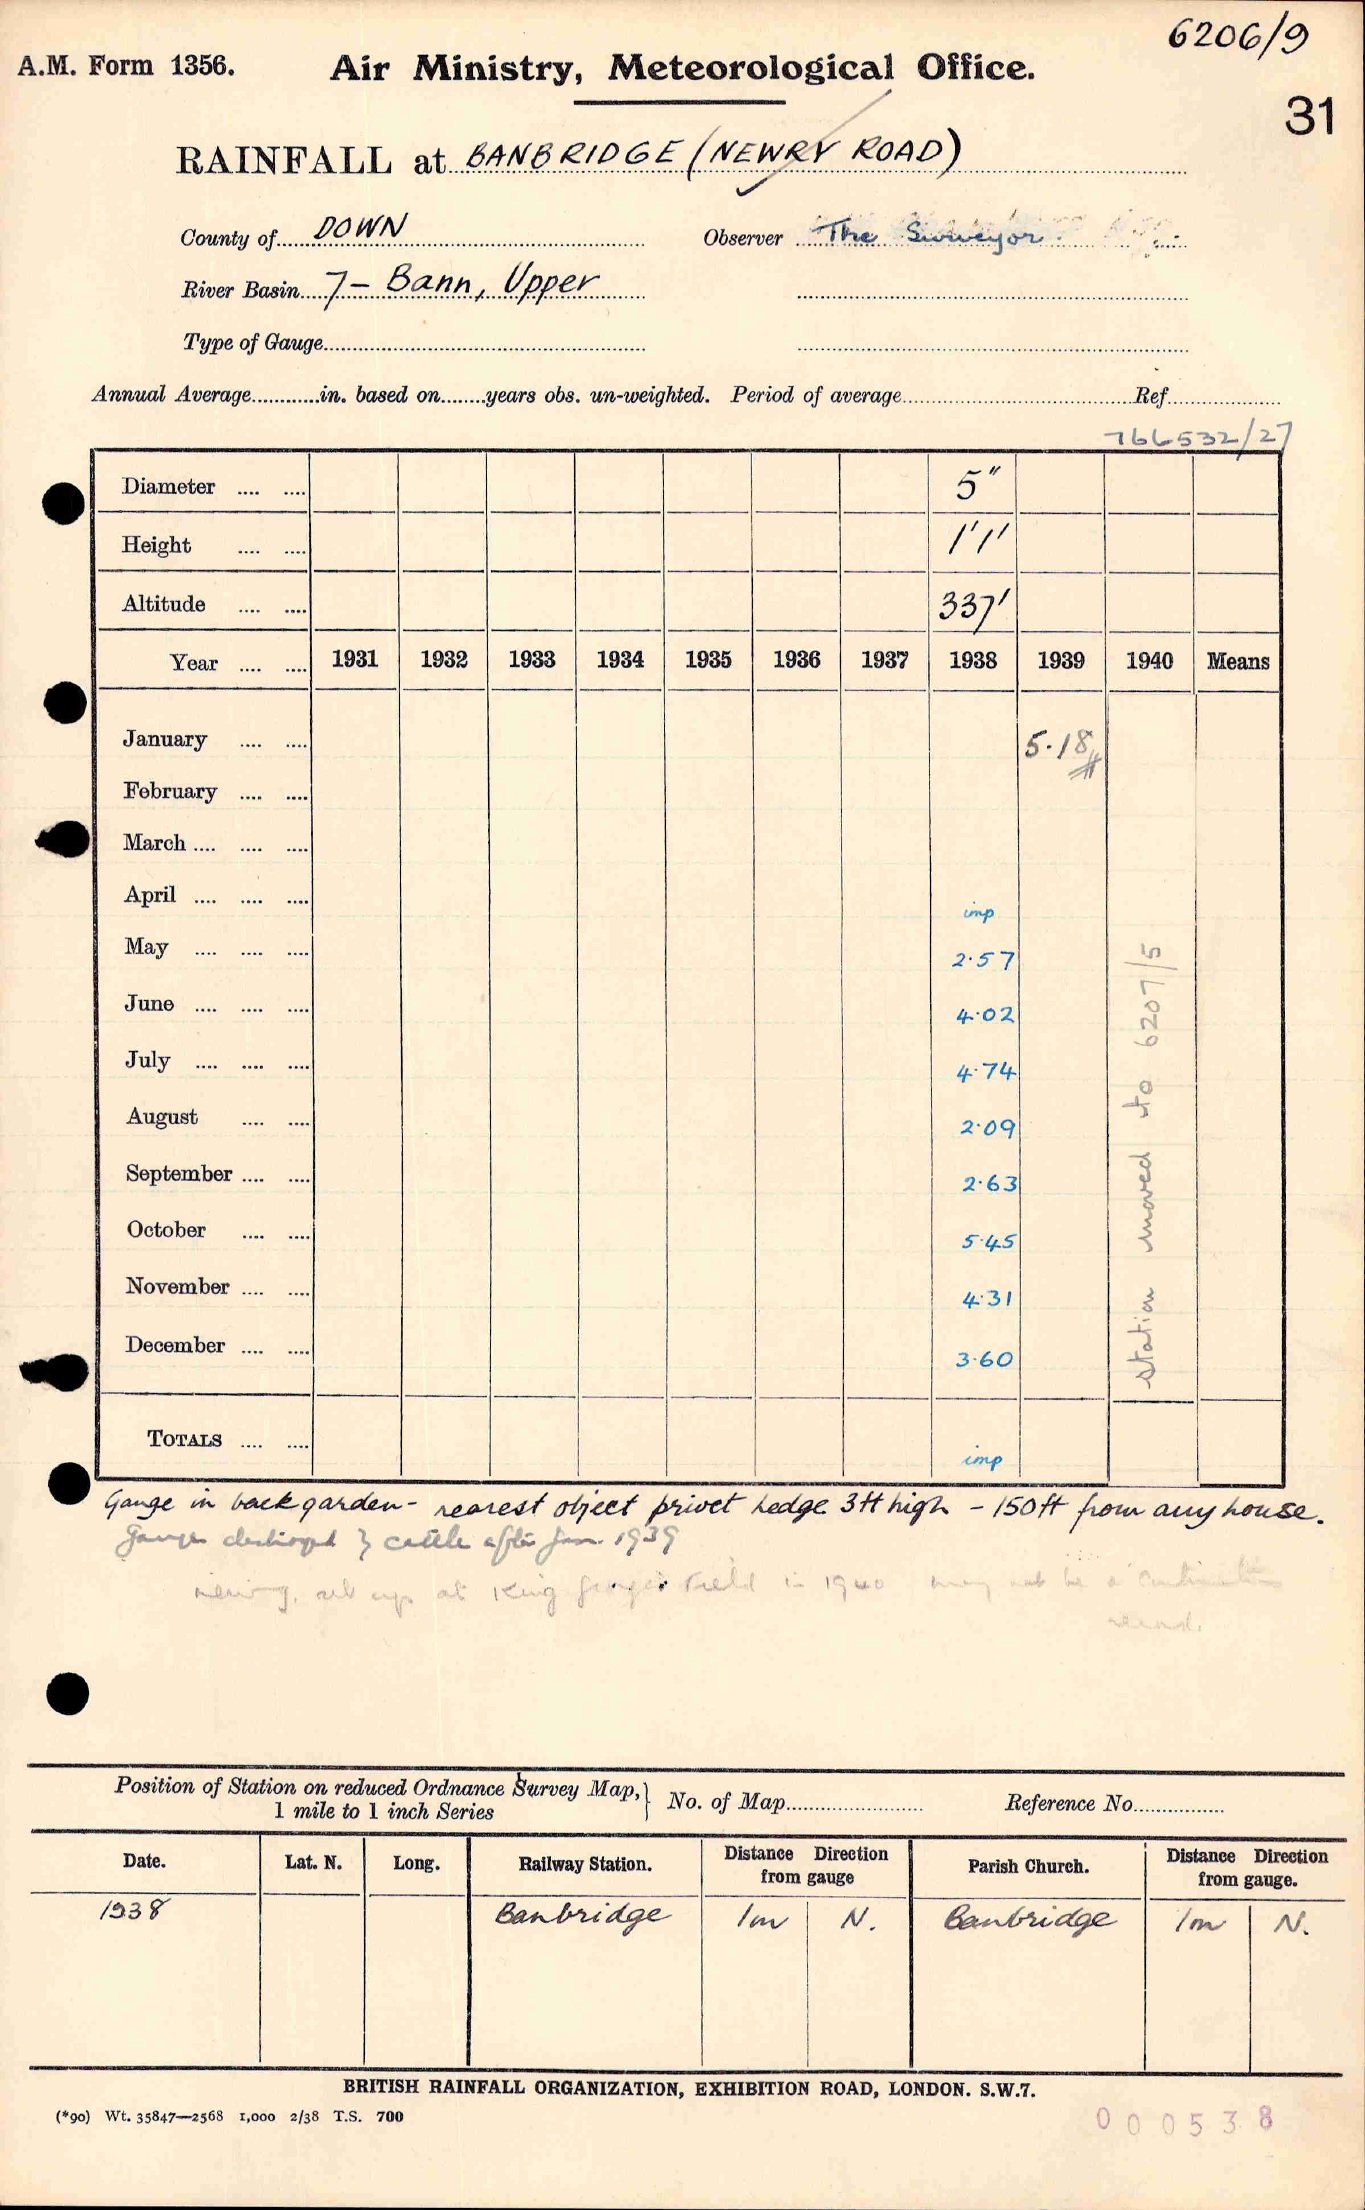 6206/9
A.M. Form 1356.
Air Ministry, Meteorological Office.
31
RAINFALL at BANBRIDGE (NEWRY ROAD)
County of DOWN
Observer The Surveyor.
River Basin 7 - Bann, Upper
Type of Gauge
Annual Average in. based on years obs. un-weighted. Period of average Ref
766532/27
Diameter 5"
Height 1'1'
Altitude 337'
Year 1931 1932 1933 1934 1935 1936 1937 1938 1939 1940 Means
January 5.18
February
March
April imp
May 2.57
June 4.02
July 4.74
August 2.09
September 2.63
October 5.45
November 4.31
December 3.60
station moved to 6207/5
TOTALS imp
Gauge in back garden - nearest object privet hedge 3ft high - 150ft from any house.
Gauge destroyed by cattle after Jan. 1939
set up at King George's Field in 1940 may not be a
record.
Position of Station on reduced Ordnance Survey Map,
1 mile to 1 inch Series
No. of Map
Reference No.
Date. Lat. N. Long. Railway Station. Distance Direction from gauge Parish Church. Distance Direction from gauge.
1938 Banbridge 1m N. Banbridge 1m N.
BRITISH RAINFALL ORGANIZATION, EXHIBITION ROAD, LONDON. S.W.7.
(*90) Wt. 35847—2568 1,000 2/38 T.S. 700
000538